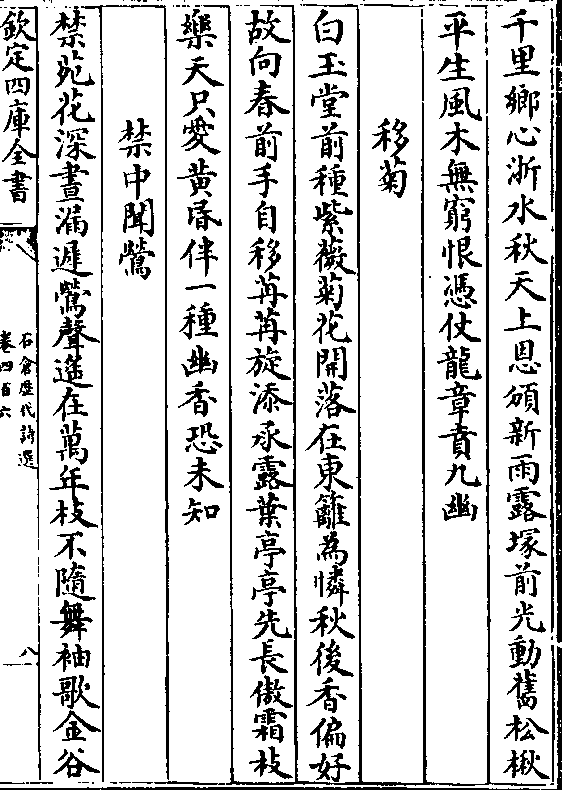 千里鄉心浙水秋天上恩頒新雨露塚前光動舊松楸
平生風木無窮恨憑仗龍章賁九幽
移菊
白玉堂前種紫薇菊花開落在東籬為憐秋後香偏好
故向春前手自移苒苒旋添承露葉亭亭先長傲霜枝
樂天只愛黃昏伴一種幽香恐未知
禁中聞鶯
禁苑花深晝漏遲鶯聲遙在萬年枝不隨舞袖歌金谷
欽定四庫全書
石倉歷代詩選
卷四百六
八